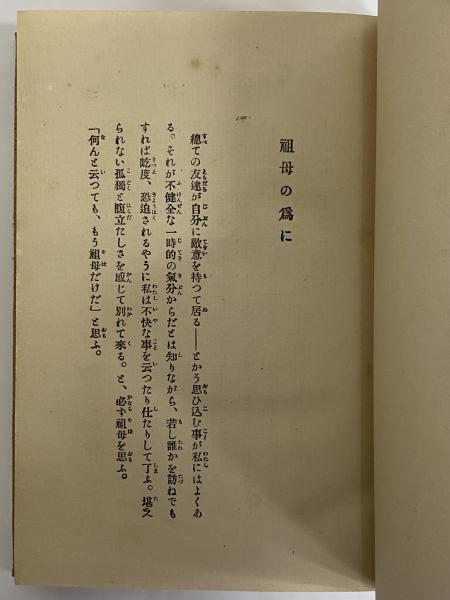 祖母の爲に
總ての友達が自分に敵意を持つて居る――とかう思ひ込む事が私にはよくあ
る。それが不健全な一時的の氣分からだとは知りながら、若し誰かを訪ねでも
すれば屹度、恐迫されるやうに私は不快な事を云つたり仕たりして了ふ。堪え
られない孤獨と腹立たしさを感じて別れて來る。と、必ず祖母を思ふ。
「何んと云つても、もう祖母だけだ」と思ふ。